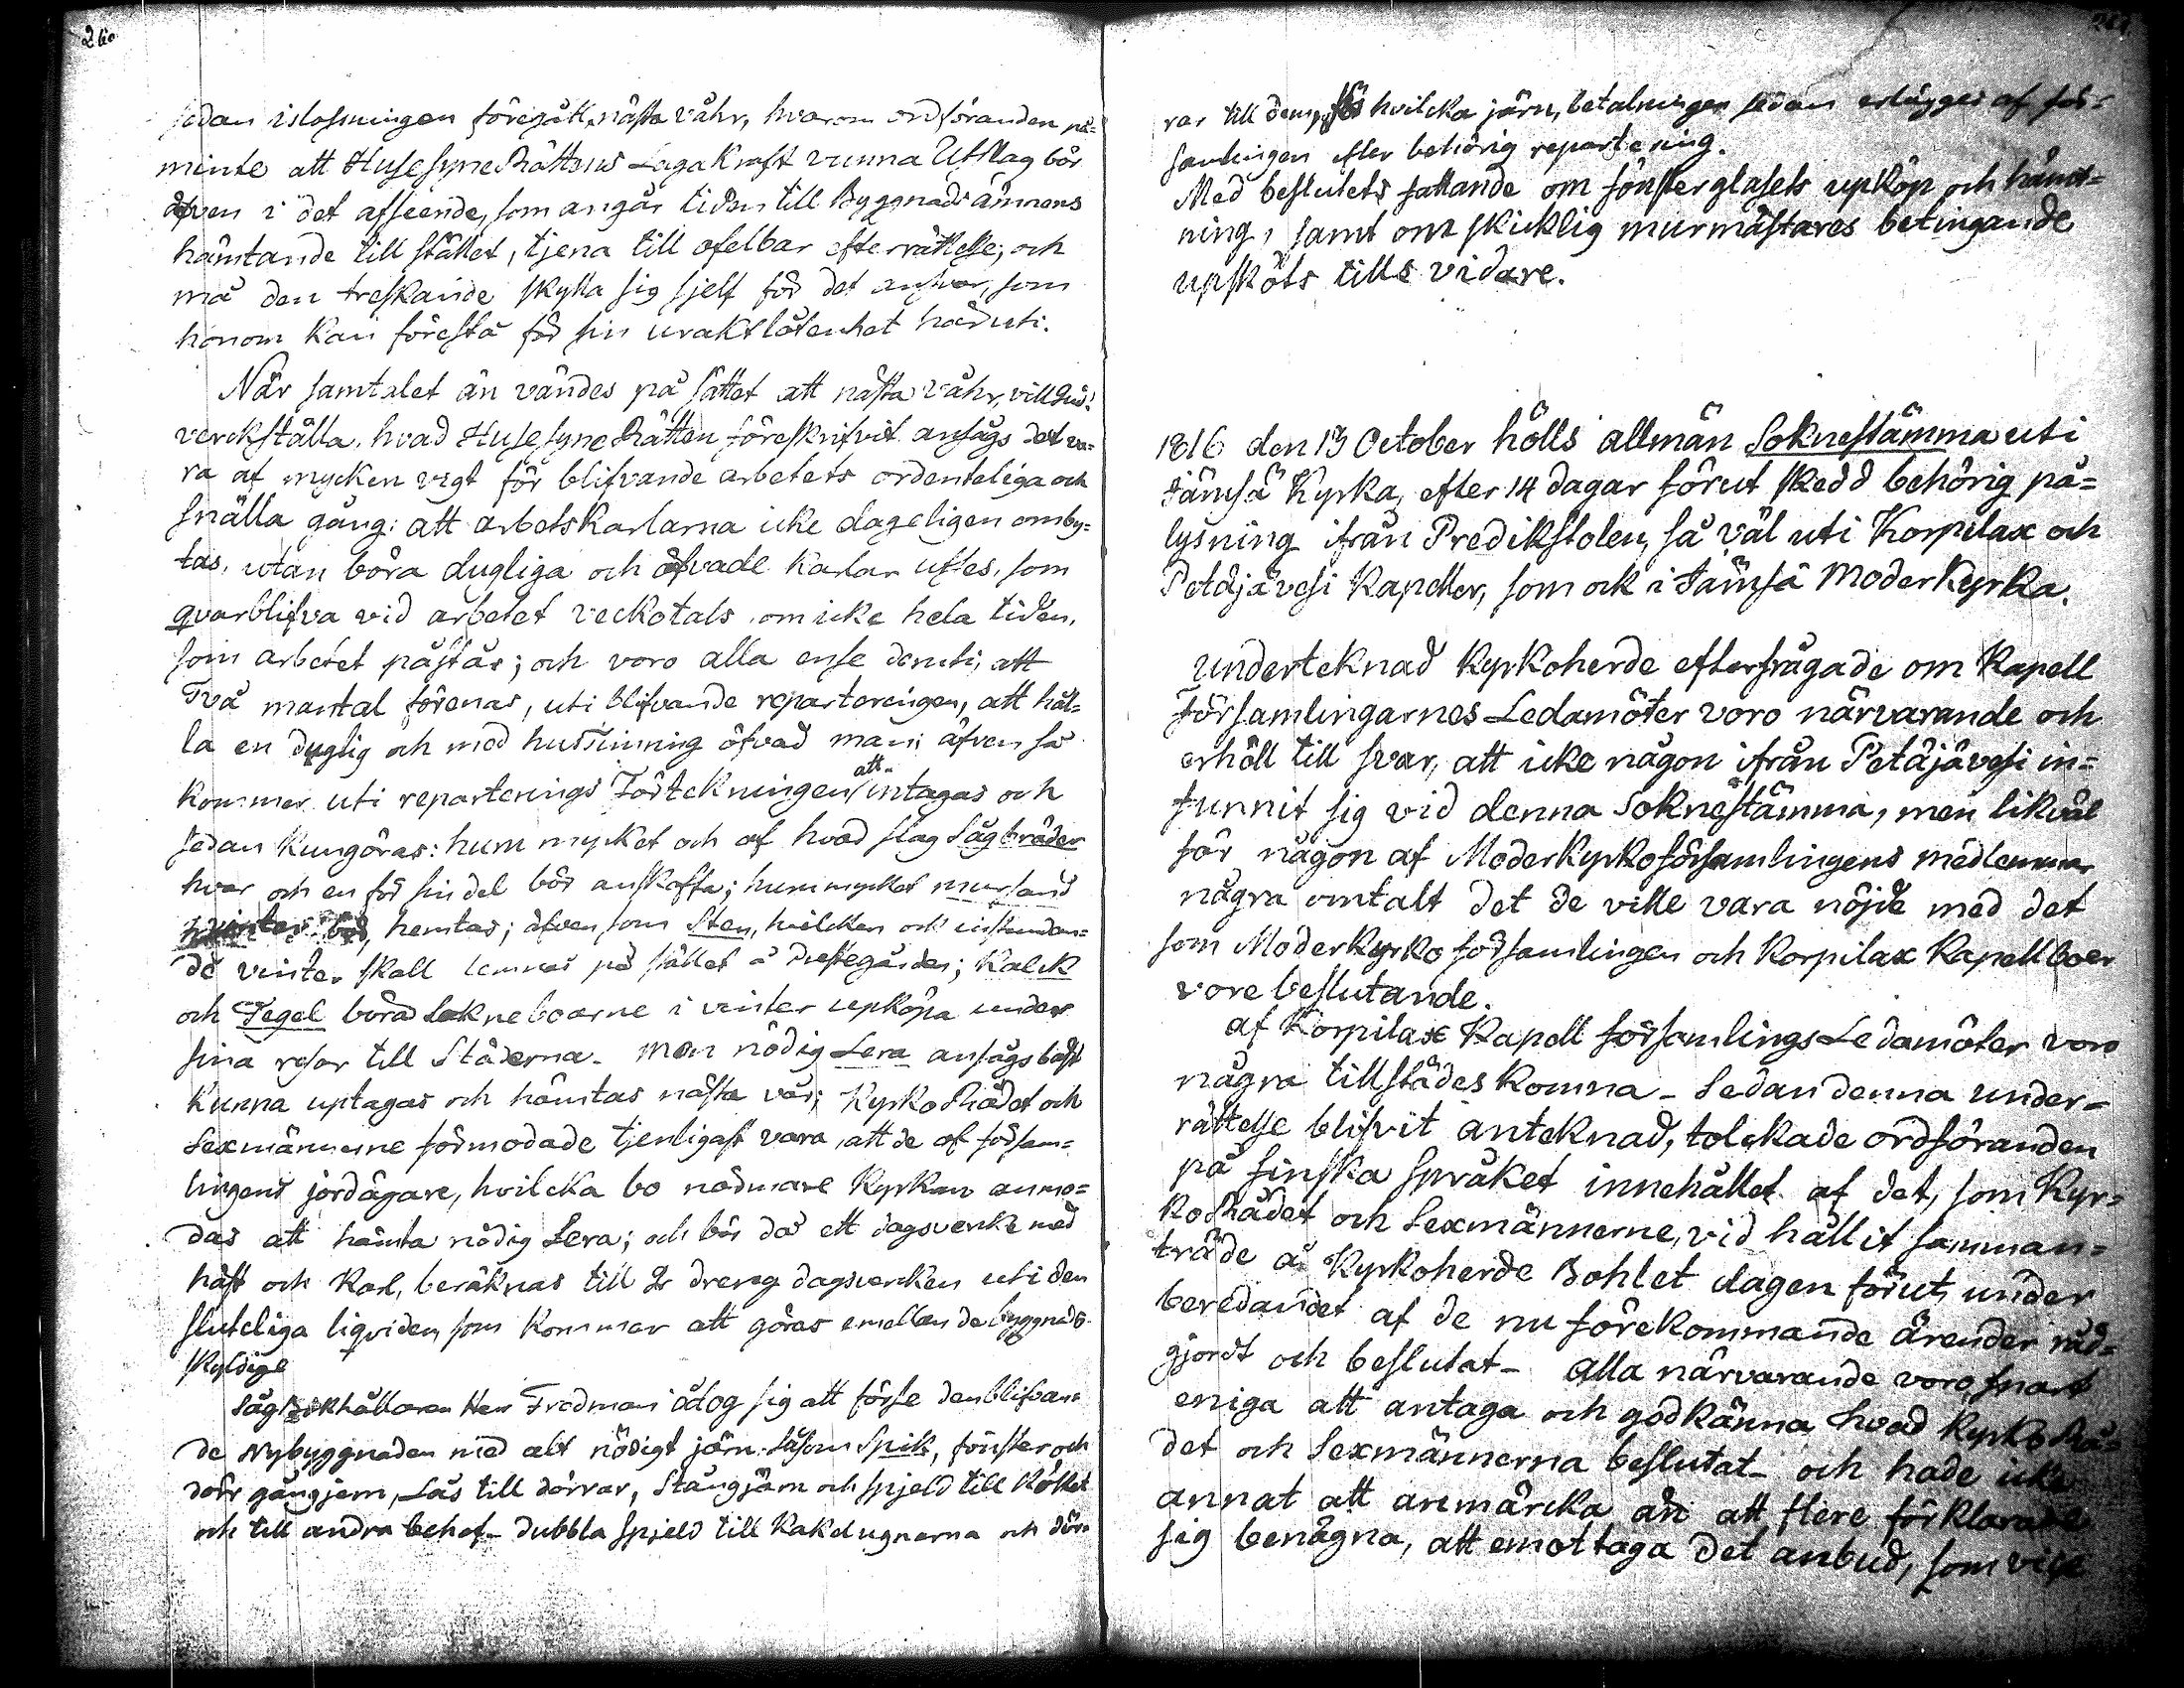 260
sedan islossningen föregått, nästa våhr, hvarom ordföranden på=
minte att HusesyneRättens Laga Kraft vunna Utslag bör
äfven i det afseende, som angår tiden till Byggnads ämnens
hämtande till stället, tjena till ofelbar efterrättelse; och
må den treskande skylla sig sjelf för det answar, som
honom kan förestå för sin uraktlåtenhet häruti.
När samtalet än vändes på sättet att nästa våhr, vill Gud!
verckställa, hvad HusesyneRätten föreskrifvit ansågs det va=
ra af mycken vigt för blifvande arbetets ordenteliga och
snälla gång: att arbetskarlarna icke dageligen omby=
tas, utan böra dugliga och öfvade karlar uttes, som
qvarblifva vid arbetet veckotals, om icke hela tiden,
som arbetet påstår; och voro alla ense deruti, att
Två mantal förenas, uti blifvande reparteringen, att hål=
la en duglig och med hustimring öfvad man; äfven så
kommer uti reparterings Förtekningen att intagas och
sedan kungöras: huru mycket och af hvad slag Sågbräder
hvar och en för sin del bör anskaffa; huru mycket mursand
bör, hemtas; äfven som Sten, hvilcken ock instundan=
de vinter skall lemnas på stället å Prestegården; Kalck
och Tegel böra Sokneboerne i vinter upköpa under
sina resor till Städerna. Men nödig Lera ansågs bäst
kunna uptagas och hämtas nästa vår; KyrkoRådet och
Sexmännerne förmodade tjenligast vara, att de af försam=
lingens jordägare, hvilcka bo närmare Kyrkan anmo=
das att hämta nödig Lera; och bör då ett dagsverke med
häst och Karl, beräknas till 2r dreng dagsverken uti den
sluteliga liqviden, som kommer att göras emellan de byggnads
skyldige
SågBokhållaren Herr Fredman åtog sig att förse den blifvan=
de Nybyggnaden med alt nödigt järn såsom Spik, fönster och
dörr gångjern, Lås till dörrar, Stångjärn och spjeld till Köket
och till andra behof. dubbla spjeld till Kakelugnarna och dör=
rar till dem, för hvilcka järn, betalningen sedan erlägges af för=
samlingen efter behörig repartering.
Med beslutets fattande om fönsterglasets upköp och hämt=
ning, samt om skicklig murmästares betingande
upsköts tills vidare.
1816 den 13 October hölls allmän Soknestämma uti
Jämsä Kyrka, efter 14 dagar förut skedd behörig på=
lysning ifrån Predikstolen, så väl uti Korpilax och
Petäjävesi Kapeller, som ock i Jämsä ModerKyrka.
Underteknad Kyrkoherde efterfrågade om Kapell
Församlingarnes Ledamöter voro närvarande och
erhöll till svar, att icke någon ifrån Petäjävesi in=
funnit sig vid denna Soknestämma, men likväl
för någon af ModerKyrkoförsamlingens medlemmar
några omtalt det de ville vara nöjde med det
som ModerKyrkoförsamlingen och Korpilax Kapellboer
vore beslutande.
af Korpilax Kapell församlings Ledamöter voro
några tillstädes komna. Sedan denna under=
rättelse blifvit anteknad, tolckade ordföranden
på finska språket innehållet af det, som Kyr=
koRådet och Sexmännerne, vid hållit samman=
träde å Kyrkoherde Bohlet dagen förut, under
beredandet af de nu förekommande ärender råd=
gjordt och beslutat. Alla närvarande voro snart
eniga att antaga och godkänna hvad KyrkoRå=
det och Sexmännerna beslutat och hade icke
annat att anmärcka än att flere förklarade
sig benägna, att emottaga det anbud, som vice